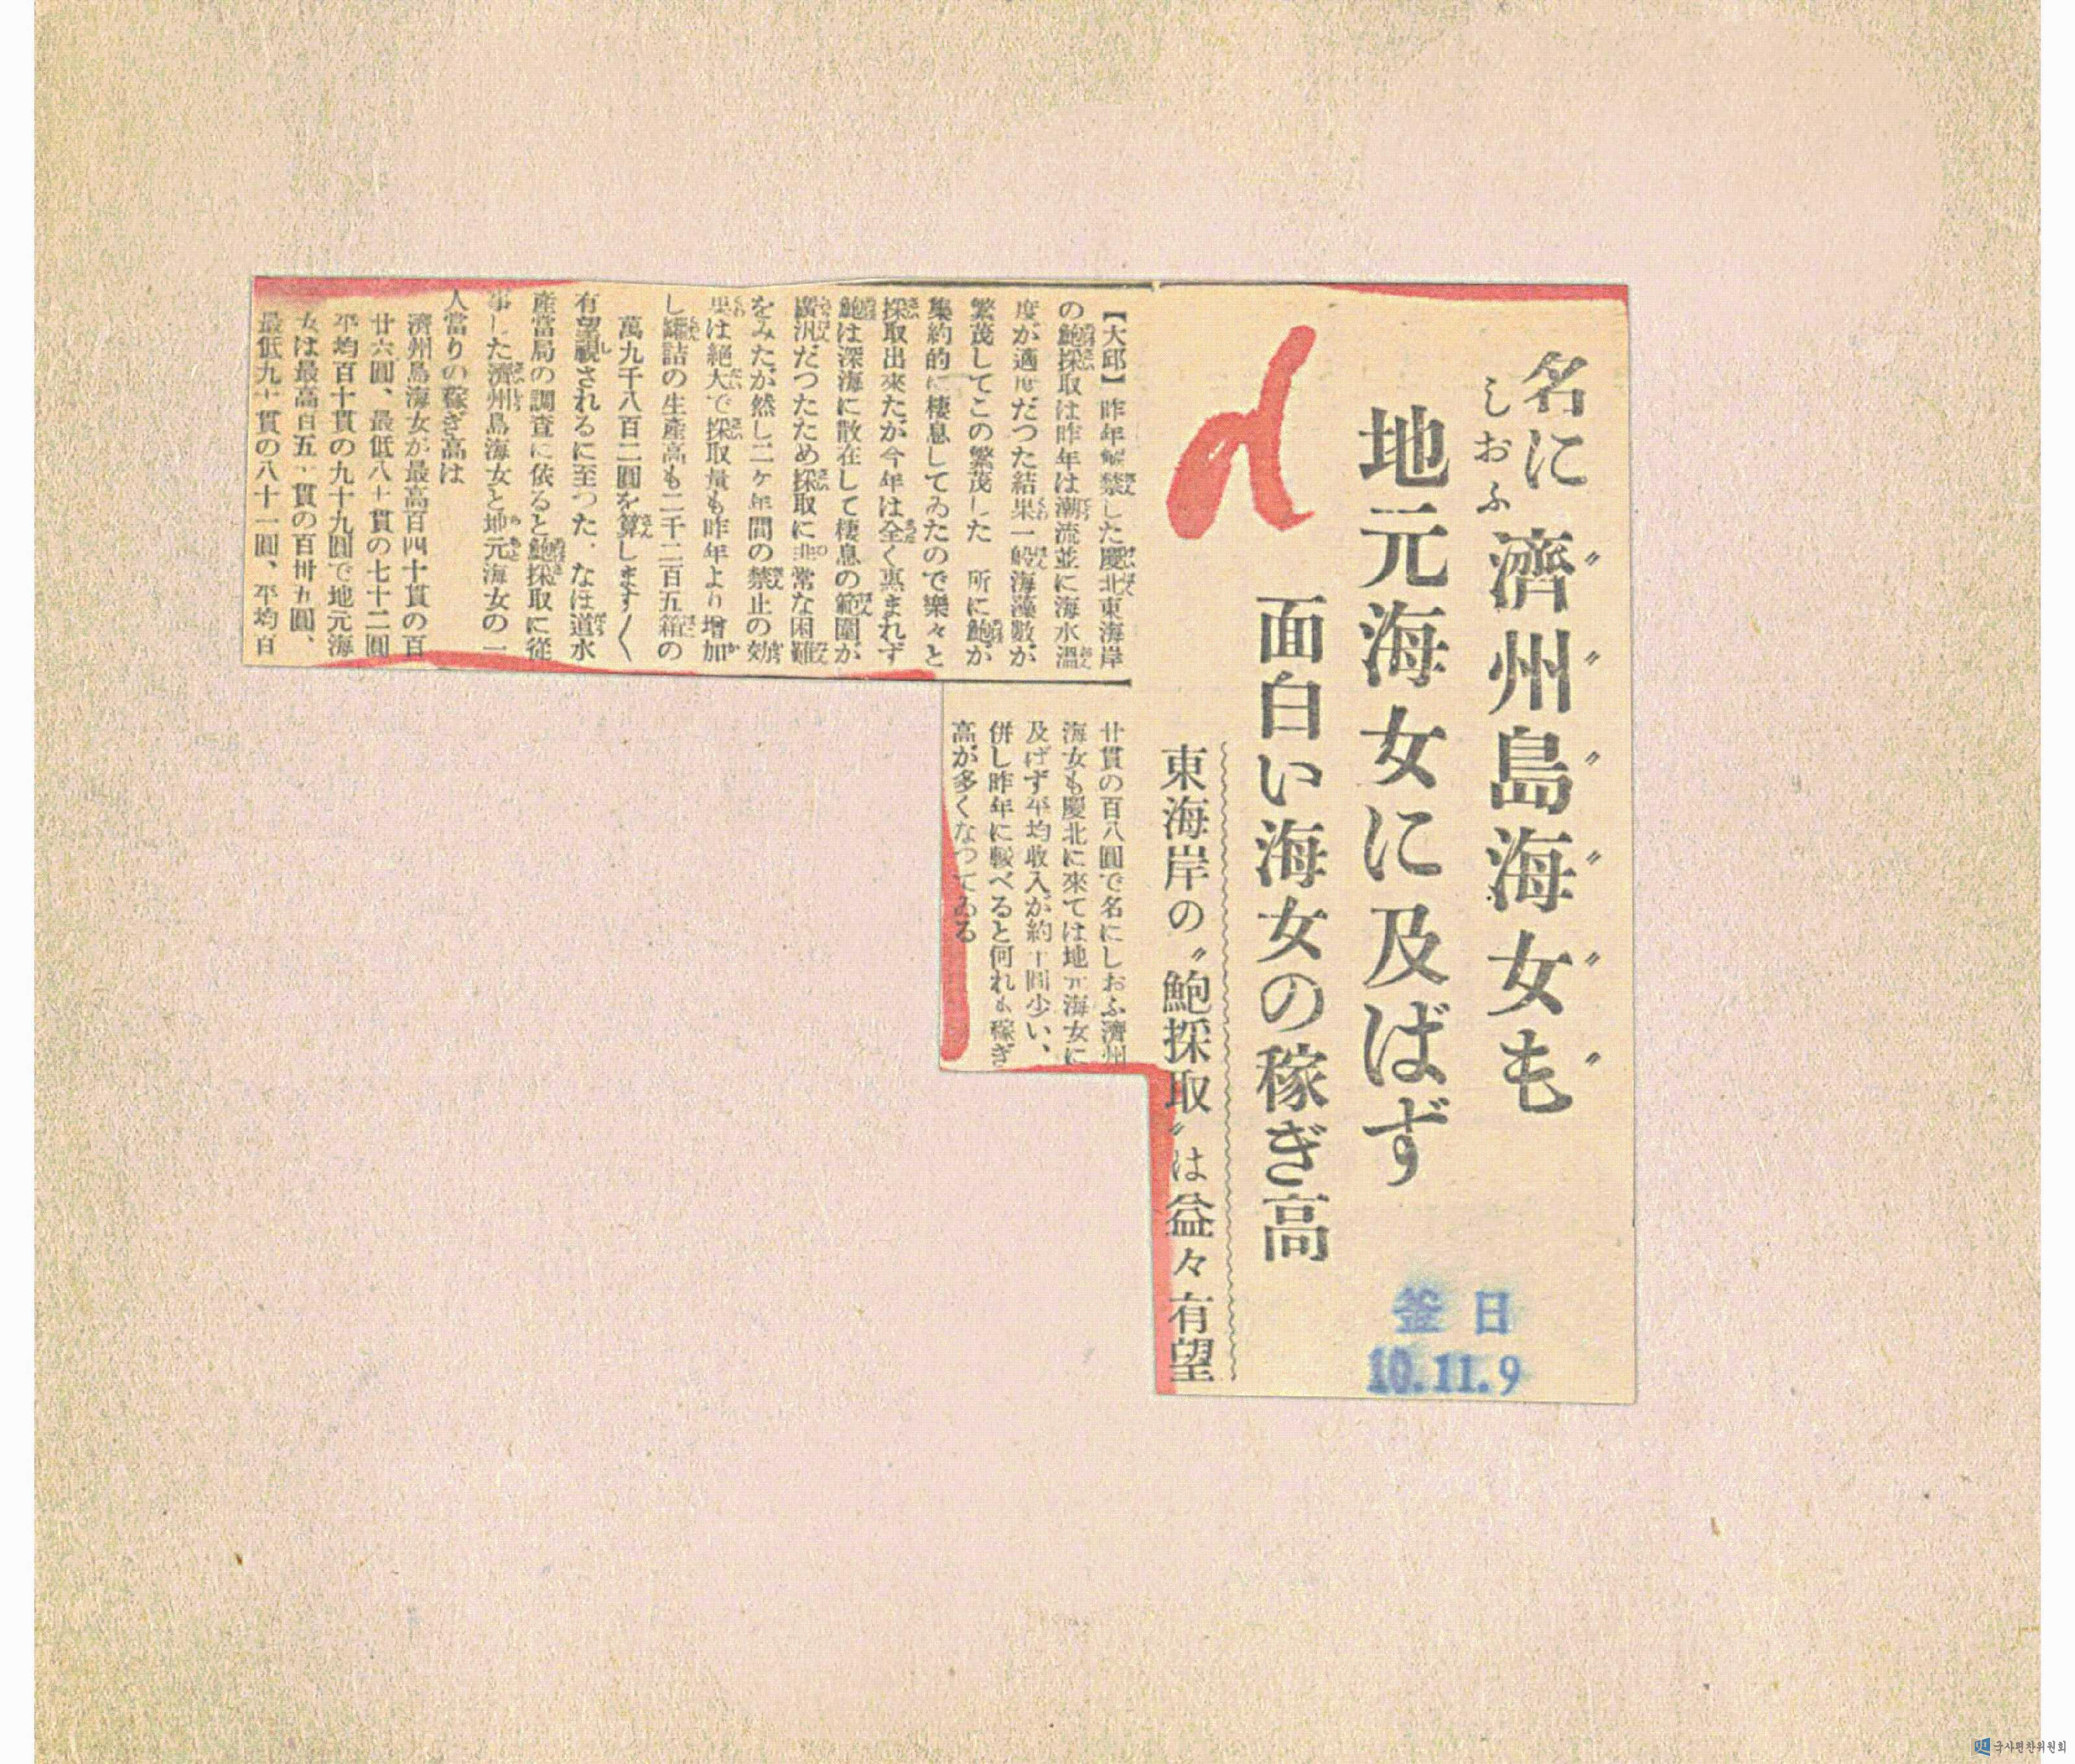 名にしおふ
濟州島海女も
地元海女に及ばず
面白い海女の稼ぎ高
東海岸の〝鮑採取〟は益々有望
【大邱】昨年解禁した慶北東海岸
の鮑採取は昨年は潮流並に海水溫
度が適度だつた結果一般海藻數が
繁茂してこの繁茂した 所に鮑が
集約的に棲息してゐたので樂々と
採取出來たが今年は全く惠まれず
鮑は深海に散在して棲息の範圍が
廣汎だつたため採取に非常な困難
をみたが然し二ケ年間の禁止の効
果は絕大で採取量も昨年より增加
し罐詰の生產高も二千二百五箱の
萬九千八百二圓を算します〱
有望視されるに至つた、なほ道水
產當局の調査に依ると鮑採取に從
事した濟州島海女と地元海女の一
人當りの稼ぎ高は
濟州島海女が最高百四十貫の百
廿六圓、最低八十貫の七十二圓
平均百十貫の九十九圓で地元海
女は最高百五十貫の百卅五圓、
最低九十貫の八十一圓、平均百
廿貫の百八圓で名にしおふ濟州
海女も慶北に來ては地元海女に
及ばず平均收入が約十圓少い、
併し昨年に較べると何れも稼ぎ
高が多くなつてゐる
釜日
10.11.9
국사편찬위원회